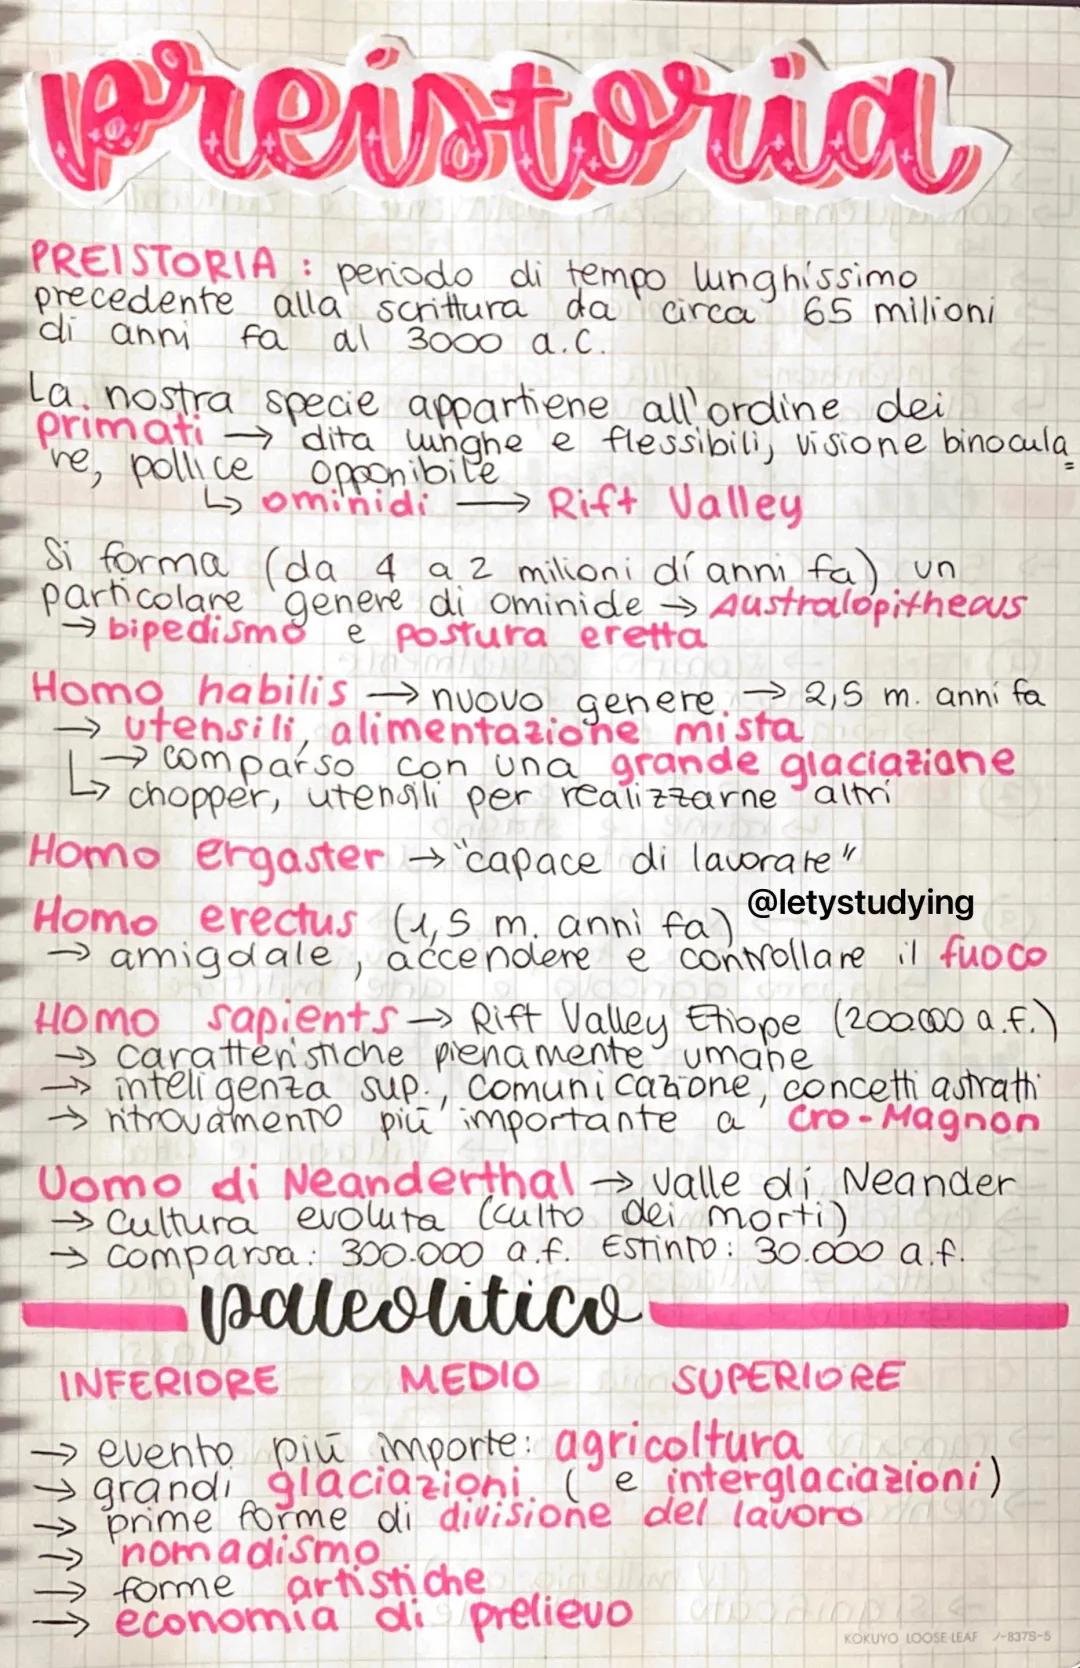 preistoria
PREISTORIA : periodo di tempo lunghissimo
precedente alla scrittura da circa 65 milioni
di anni fa al 3000 a.C.
La nostra specie appartiene all'ordine dei
primati → dita lunghe e flessibili, visione binocula
re, pollice opponibile
↳ ominidi → Rift Valley
Si forma (da 4 a 2 milioni di anni fa) un
particolare genere di ominide → Australopitheous
→ bipedismo e postura eretta
Homo habilis → nuovo genere → 2,5 m. anni fa
→ utensili, alimentazione mista
→ comparso con una grande glaciazione
↳ chopper, utensili per realizzarne altri
Homo ergaster → "capace di lavorare"
@letystudying
Homo erectus (1,5 m. anni fa)
→ amigdale, accendere e controllare il fuoco
Homo sapients → Rift Valley Etiope (200.000 a.f.)
→ caratteristiche pienamente umane
→ inteligenza sup., comunicazione, concetti astratti
→ ritrovamento più importante a Cro-Magnon
Uomo di Neanderthal → valle di Neander
→ cultura evoluta (culto dei morti)
→ comparsa: 300.000 a.f. Estinto: 30.000 a.f.
paleolitico
INFERIORE MEDIO SUPERIORE
→ evento più importe: agricoltura
→ grandi glaciazioni (e interglaciazioni)
→ prime forme di divisione del lavoro
→ nomadismo
→ forme artistiche
→ economia di prelievo
KOKUYO LOOSE-LEAF ノ-837S-5